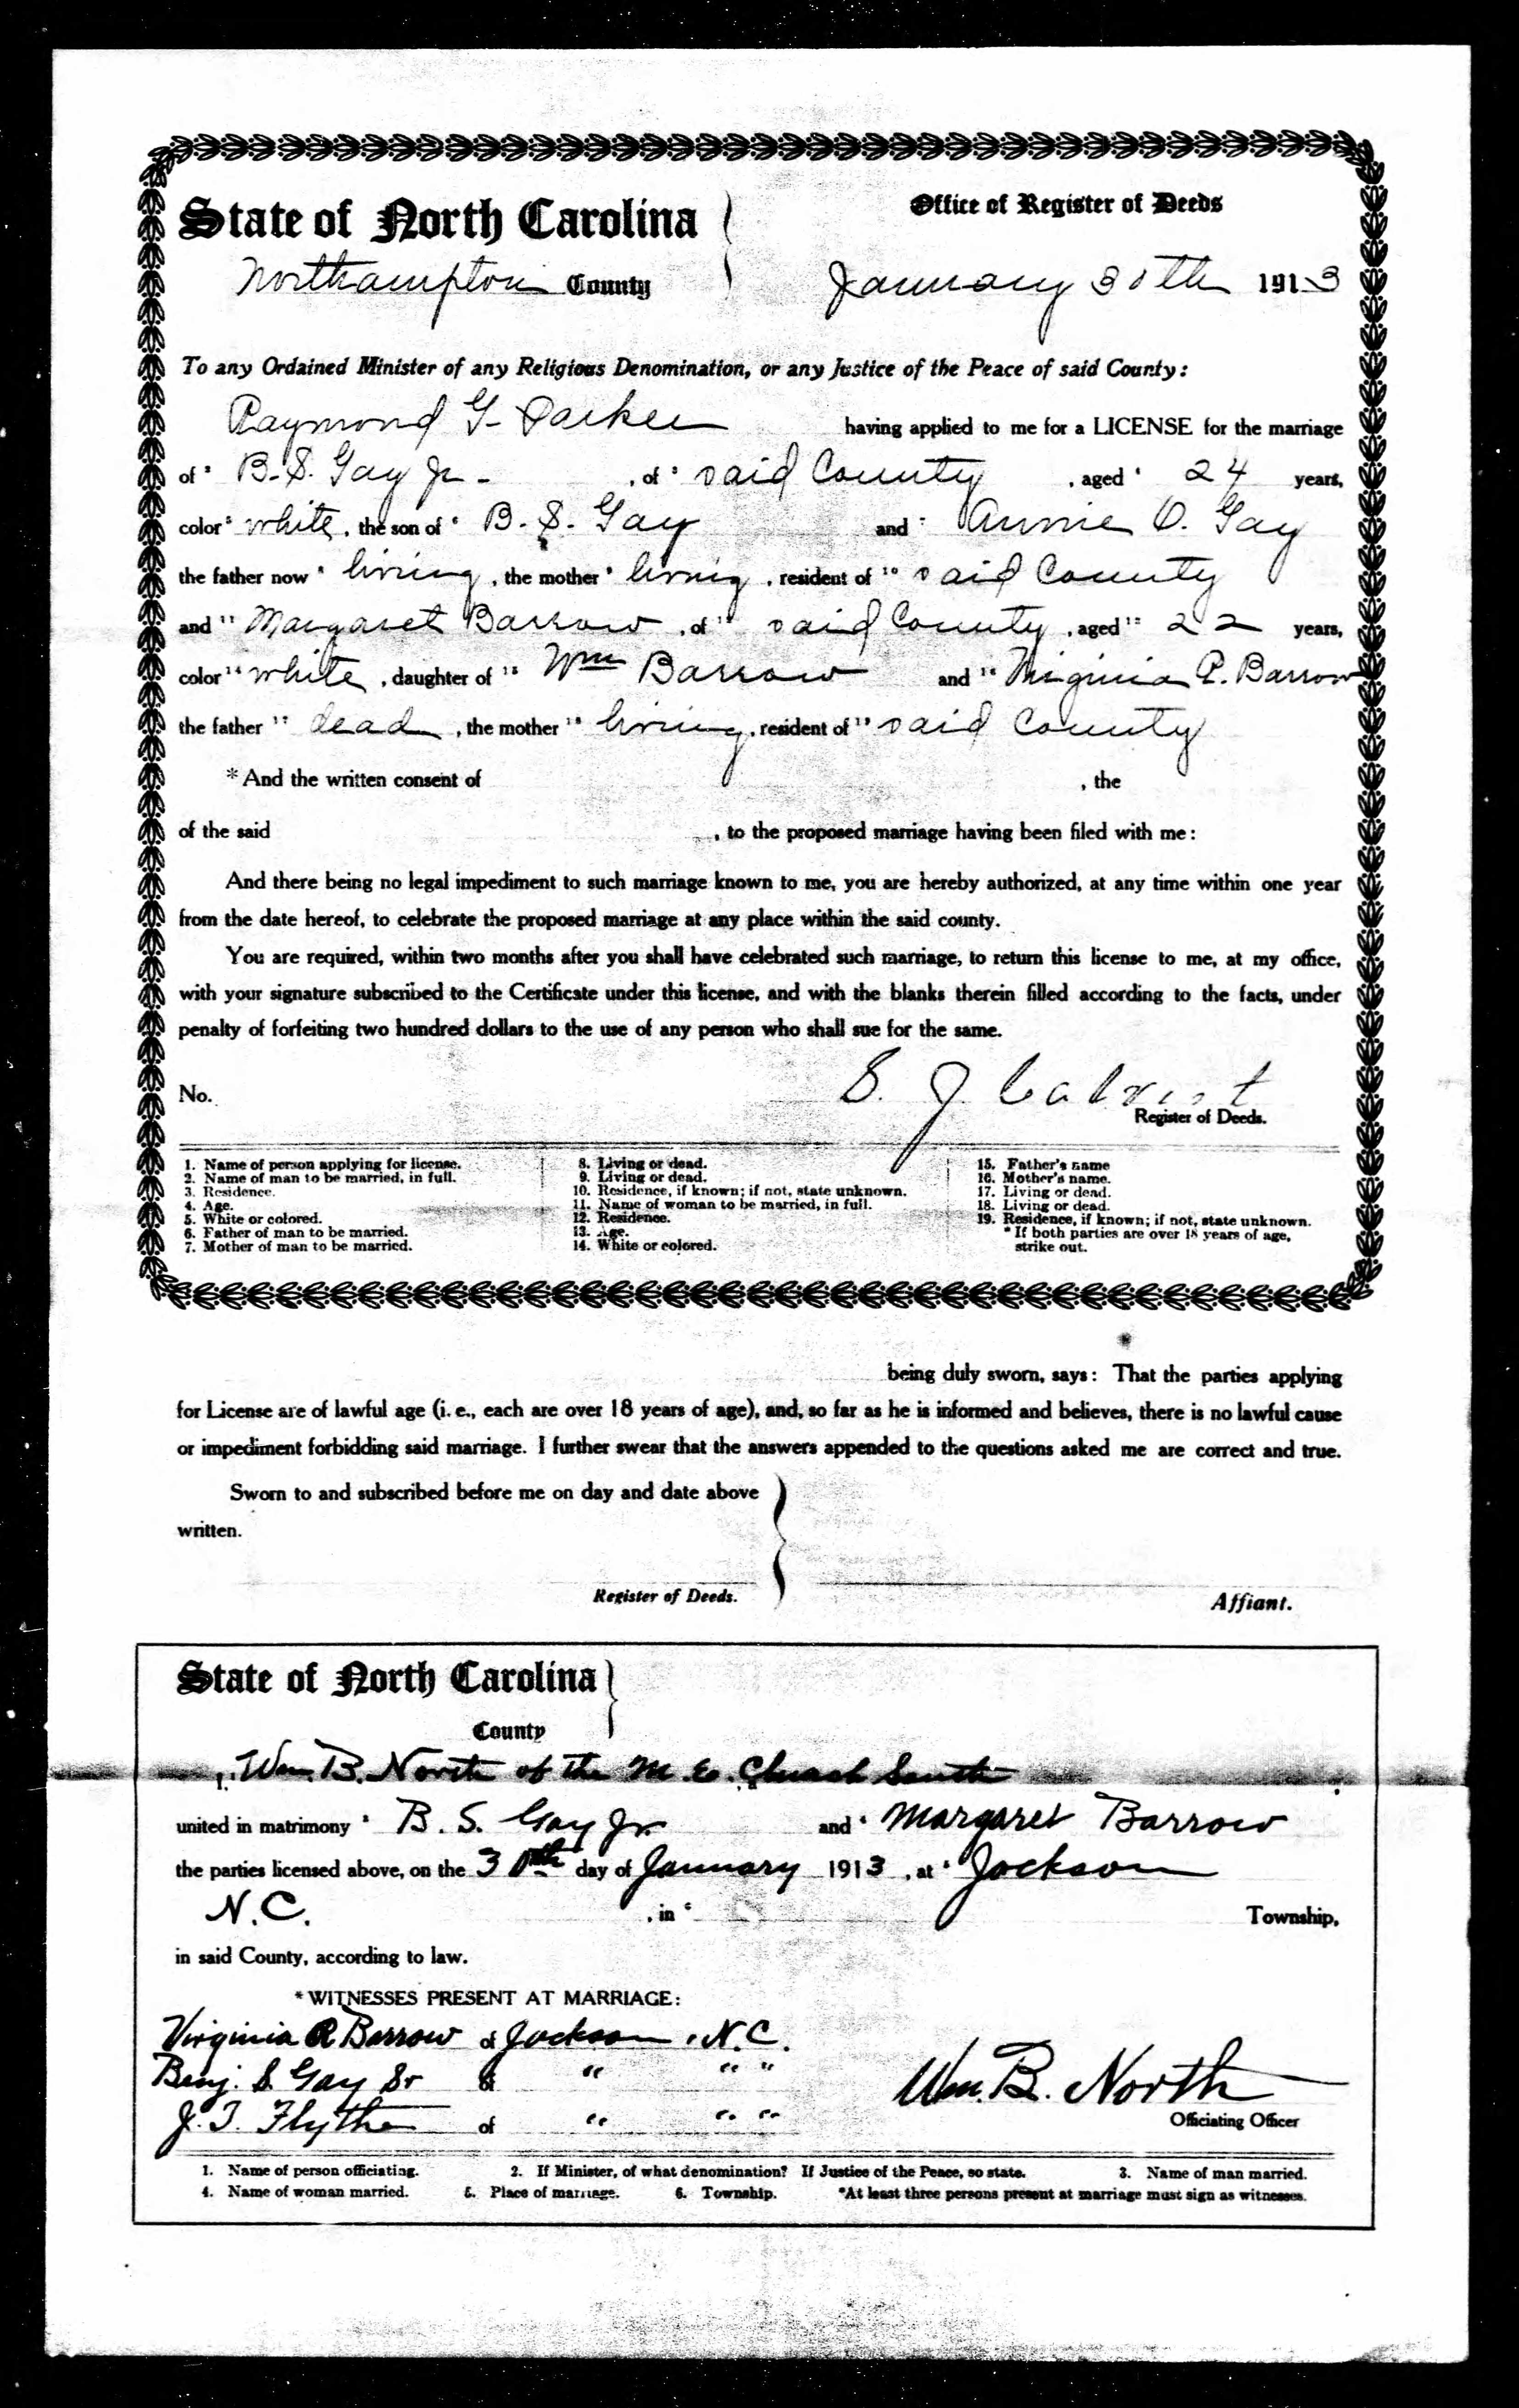 State of North Carolina
Office of Register of Deeds
Northampton County
January 30th 1913
To any Ordained Minister of any Religious Denomination, or any Justice of the Peace of said County:
Raymond G- Parker having applied to me for a LICENSE for the marriage
of 2 B. S. Gay Jr- , of 3 said County , aged 4 24 years,
color 5 white, the son of 6 B. S. Gay and 7 Annie O. Gay
the father now 8 living, the mother 9 living, resident of 10 said County
and 11 Margaret Barrow, of 12 said County, aged 13 22 years,
color 14 white, daughter of 15 Wm Barrow and 16 Virginia P. Barrow
the father 17 dead, the mother 18 living, resident of 19 said County
*And the written consent of , the
of the said , to the proposed marriage having been filed with me:
And there being no legal impediment to such marriage known to me, you are hereby authorized, at any time within one year
from the date hereof, to celebrate the proposed marriage at any place within the said county.
You are required, within two months after you shall have celebrated such marriage, to return this license to me, at my office,
with your signature subscribed to the Certificate under this license, and with the blanks therein filled according to the facts, under
penalty of forfeiting two hundred dollars to the use of any person who shall sue for the same.
No.
S. J. Calvert
Register of Deeds.
1. Name of person applying for license.
2. Name of man to be married, in full.
3. Residence.
4. Age.
5. White or colored.
6. Father of man to be married.
7. Mother of man to be married.
8. Living or dead.
9. Living or dead.
10. Residence, if known; if not, state unknown.
11. Name of woman to be married, in full.
12. Residence.
13. Age.
14. White or colored.
15. Father's name
16. Mother's name.
17. Living or dead.
18. Living or dead.
19. Residence, if known; if not, state unknown.
* If both parties are over 18 years of age,
strike out.
being duly sworn, says: That the parties applying
for License are of lawful age (i. e., each are over 18 years of age), and, so far as he is informed and believes, there is no lawful cause
or impediment forbidding said marriage. I further swear that the answers appended to the questions asked me are correct and true.
Sworn to and subscribed before me on day and date above
written.
Register of Deeds.
Affiant.
State of North Carolina
County
Wm. B. North of the M. E. Church South
united in matrimony 3 B. S. Gay Jr. and 4 Margaret Barrow
the parties licensed above, on the 30th day of January 1913, at 5 Jackson
N.C. , in 6 Township,
in said County, according to law.
* WITNESSES PRESENT AT MARRIAGE:
Virginia P. Barrow of Jackson, N.C.
Benj. S. Gay Sr of " " "
J. T. Flythe of " " "
Wm. B. North
Officiating Officer
1. Name of person officiating. 2. If Minister, of what denomination? If Justice of the Peace, so state. 3. Name of man married.
4. Name of woman married. 5. Place of marriage. 6. Township. *At least three persons present at marriage must sign as witnesses.